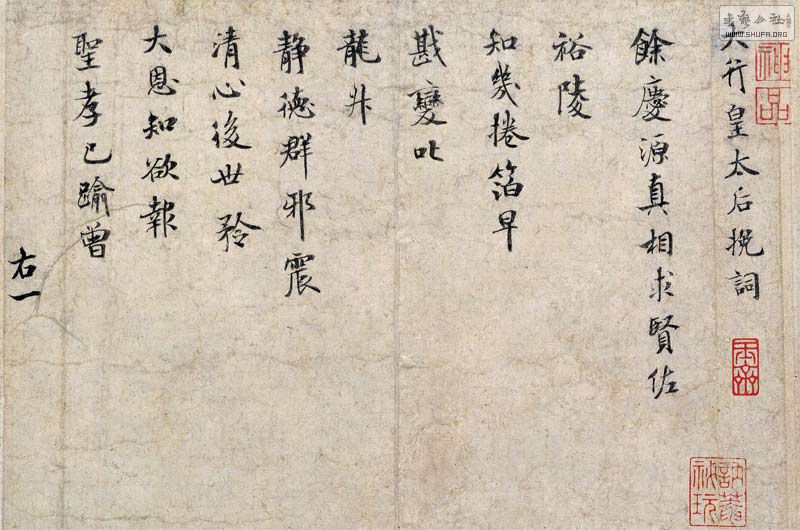 大行皇太后挽詞
餘慶源真相求賢佐
裕陵
知幾捲箔早
戡變叱
龍升
静德群邪震
清心後世矜
大恩知欲報
聖孝已踰曾
右一
神品
WWW.SHUFA.ORG